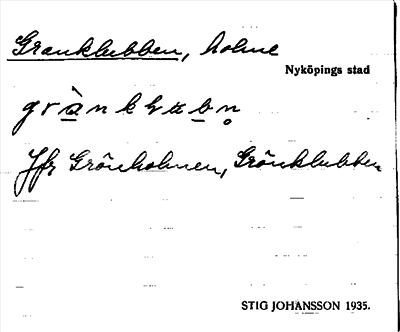 Granklubben, holme
Nyköpings stad
grànklubn̥
Jfr Grönholmen, Grönklubben
STIG JOHANSSON 1935.